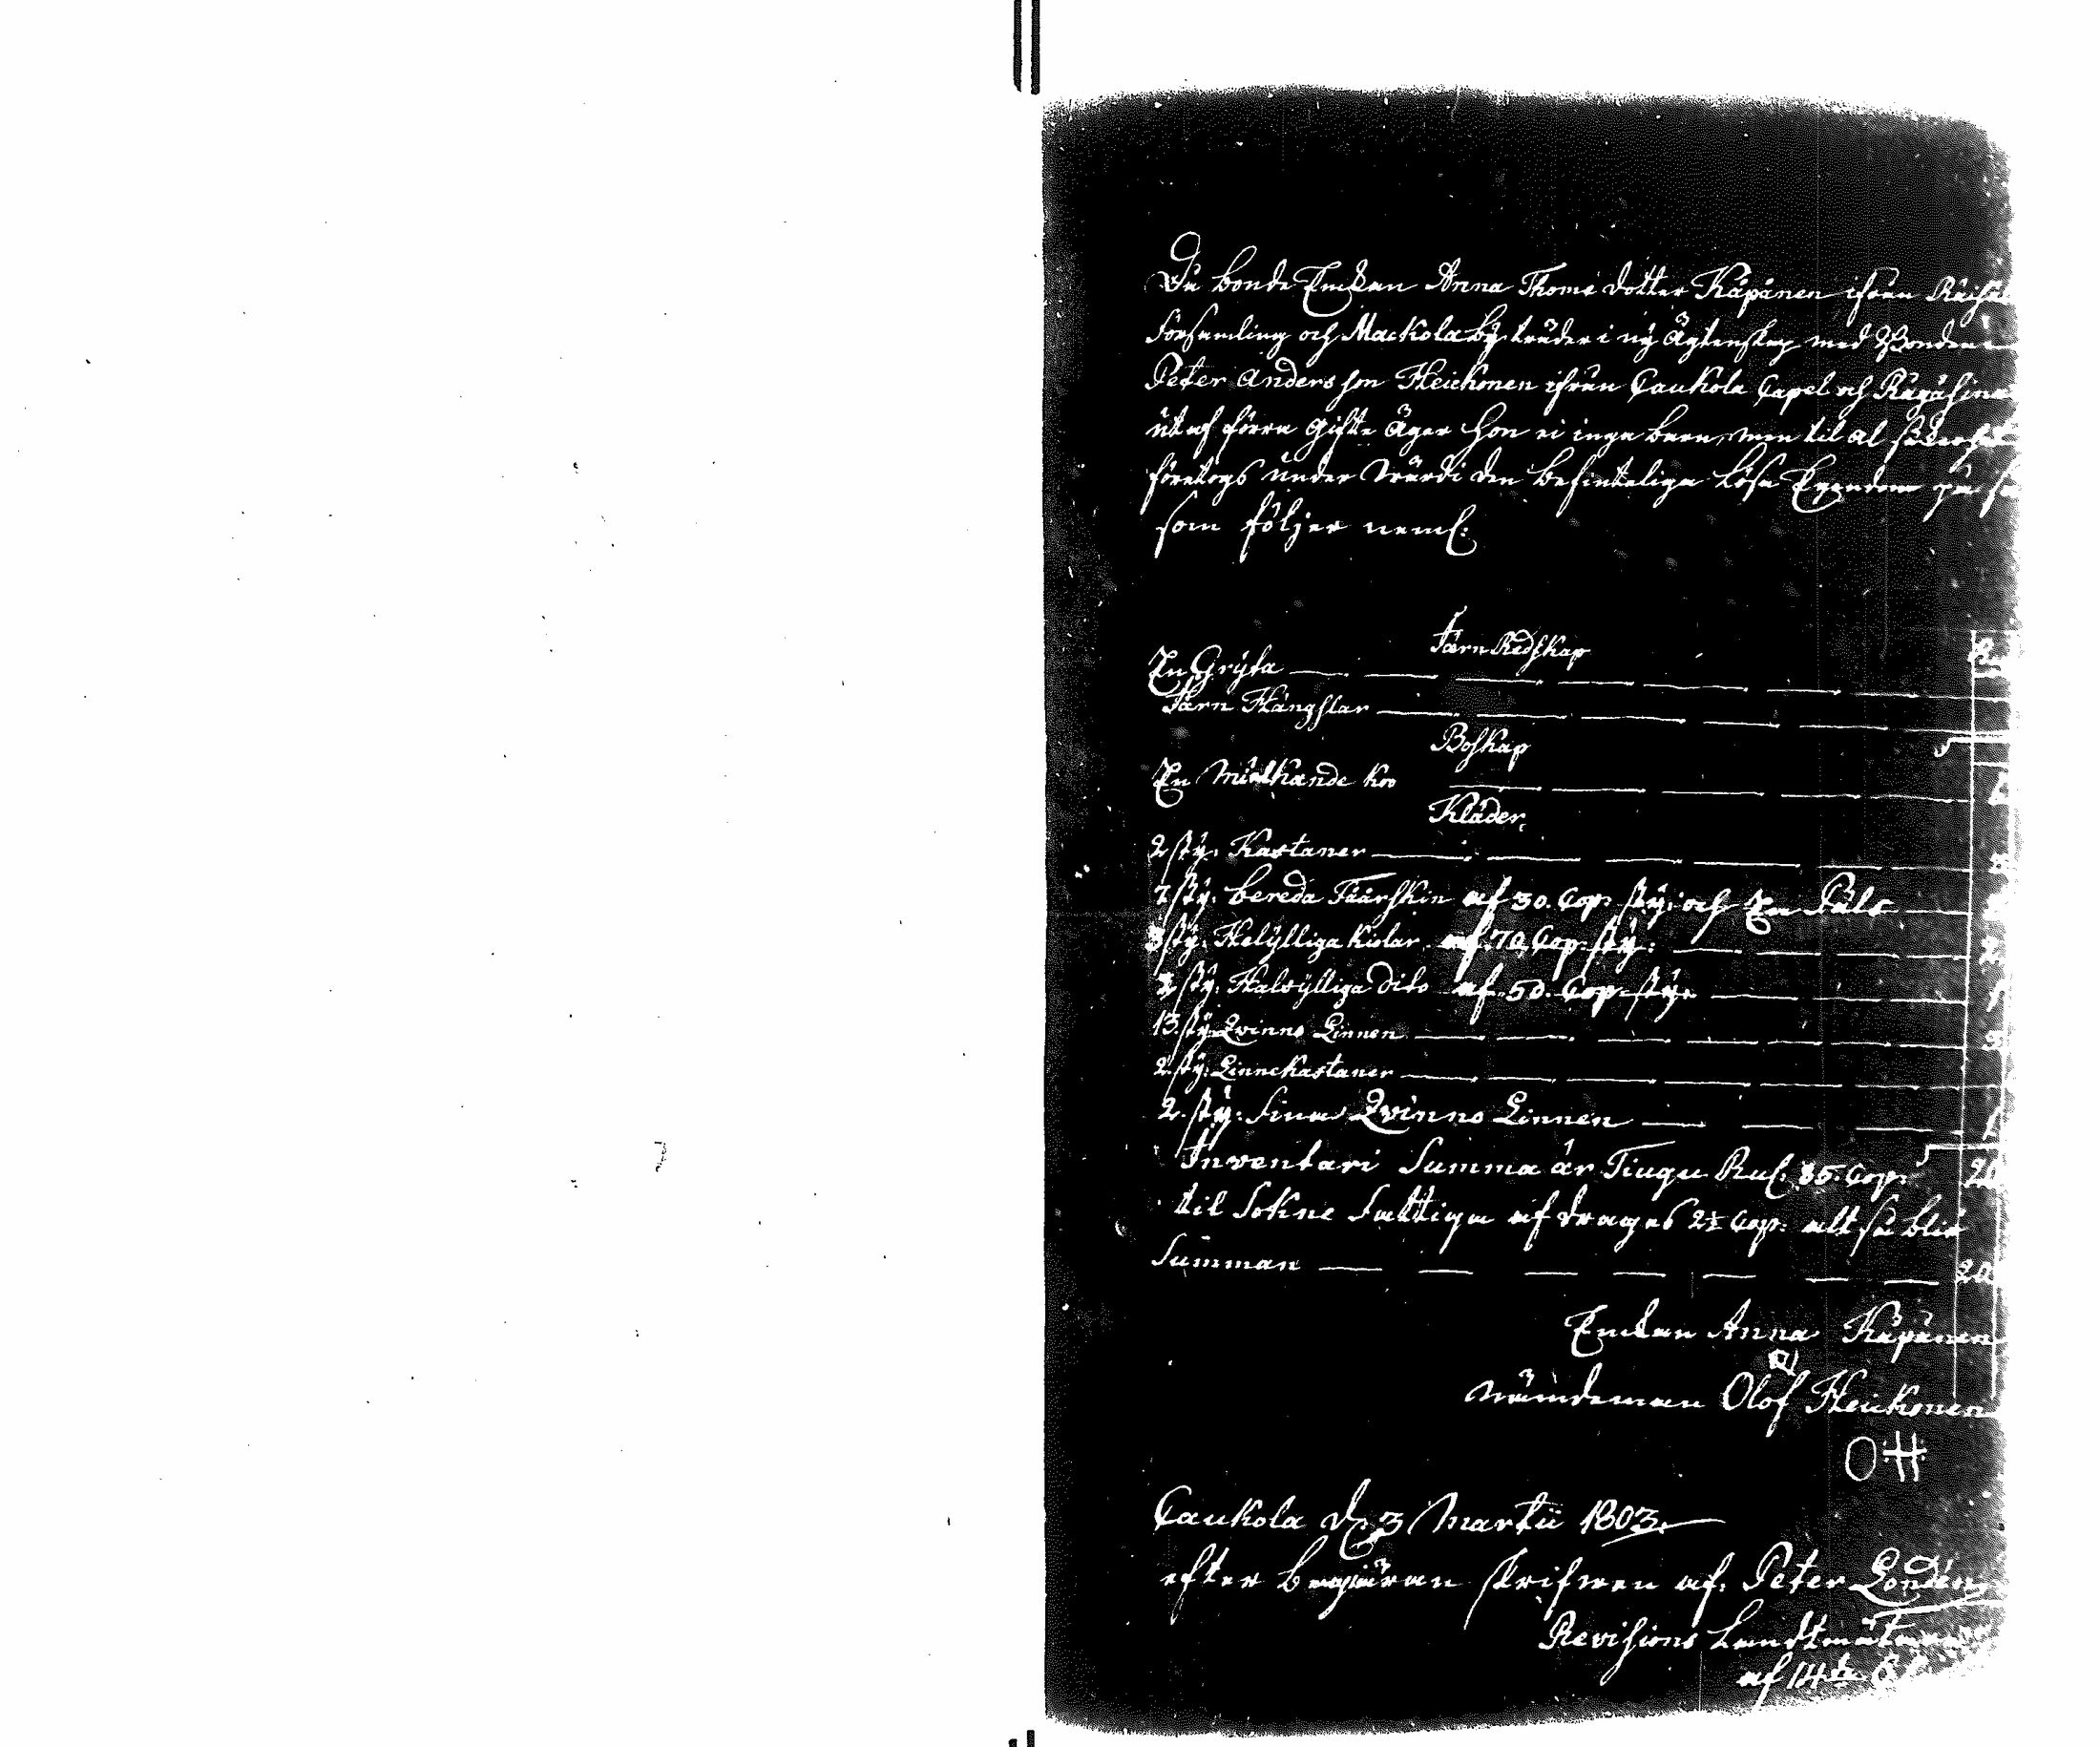 Då bonde Enckan Anna Thoms dotter Käpänen ifrån Räisä
församling och Mackola by träder i ny Ägtenskap med Bonden
Peter Anders son Heickonen ifrån Caukola Capel och Rägäsina
ut af förra gifte Äger hon ei inga barn, men til al säkerhet
företogs under Wärdi den befinteliga lösa Egendom på så
som följer neml:
Järn Redskap
En Gryta
Järn Hängslar
Boskap
En Miölkande ko
Kläder
2 sty: Kastaner
7 sty: beredа Fåårskin af 30. Cop: sty: och En Päls
3 sty: Helylliga Kiolar af 70 Cop: sty:
2 sty: Halvylliga dito af 50. Cop: sty:
13. sty: Qvinno Linnen
2 sty: Linnekastaner
2. sty: fina Qvinno Linnen
Inventari Summa är Tiugu Rub: 85. Cop: 20
til Sokne Fattiga af drages 2½ Cop: alt så blir
Summan 20
Enckan Anna Käpänen
nämdeman Olof Heickonen
OH
Caukola d. 3 Martii 1803.
efter begiäran skrifwen af. Peter Londén
Revisions Landtmätare
af 14de